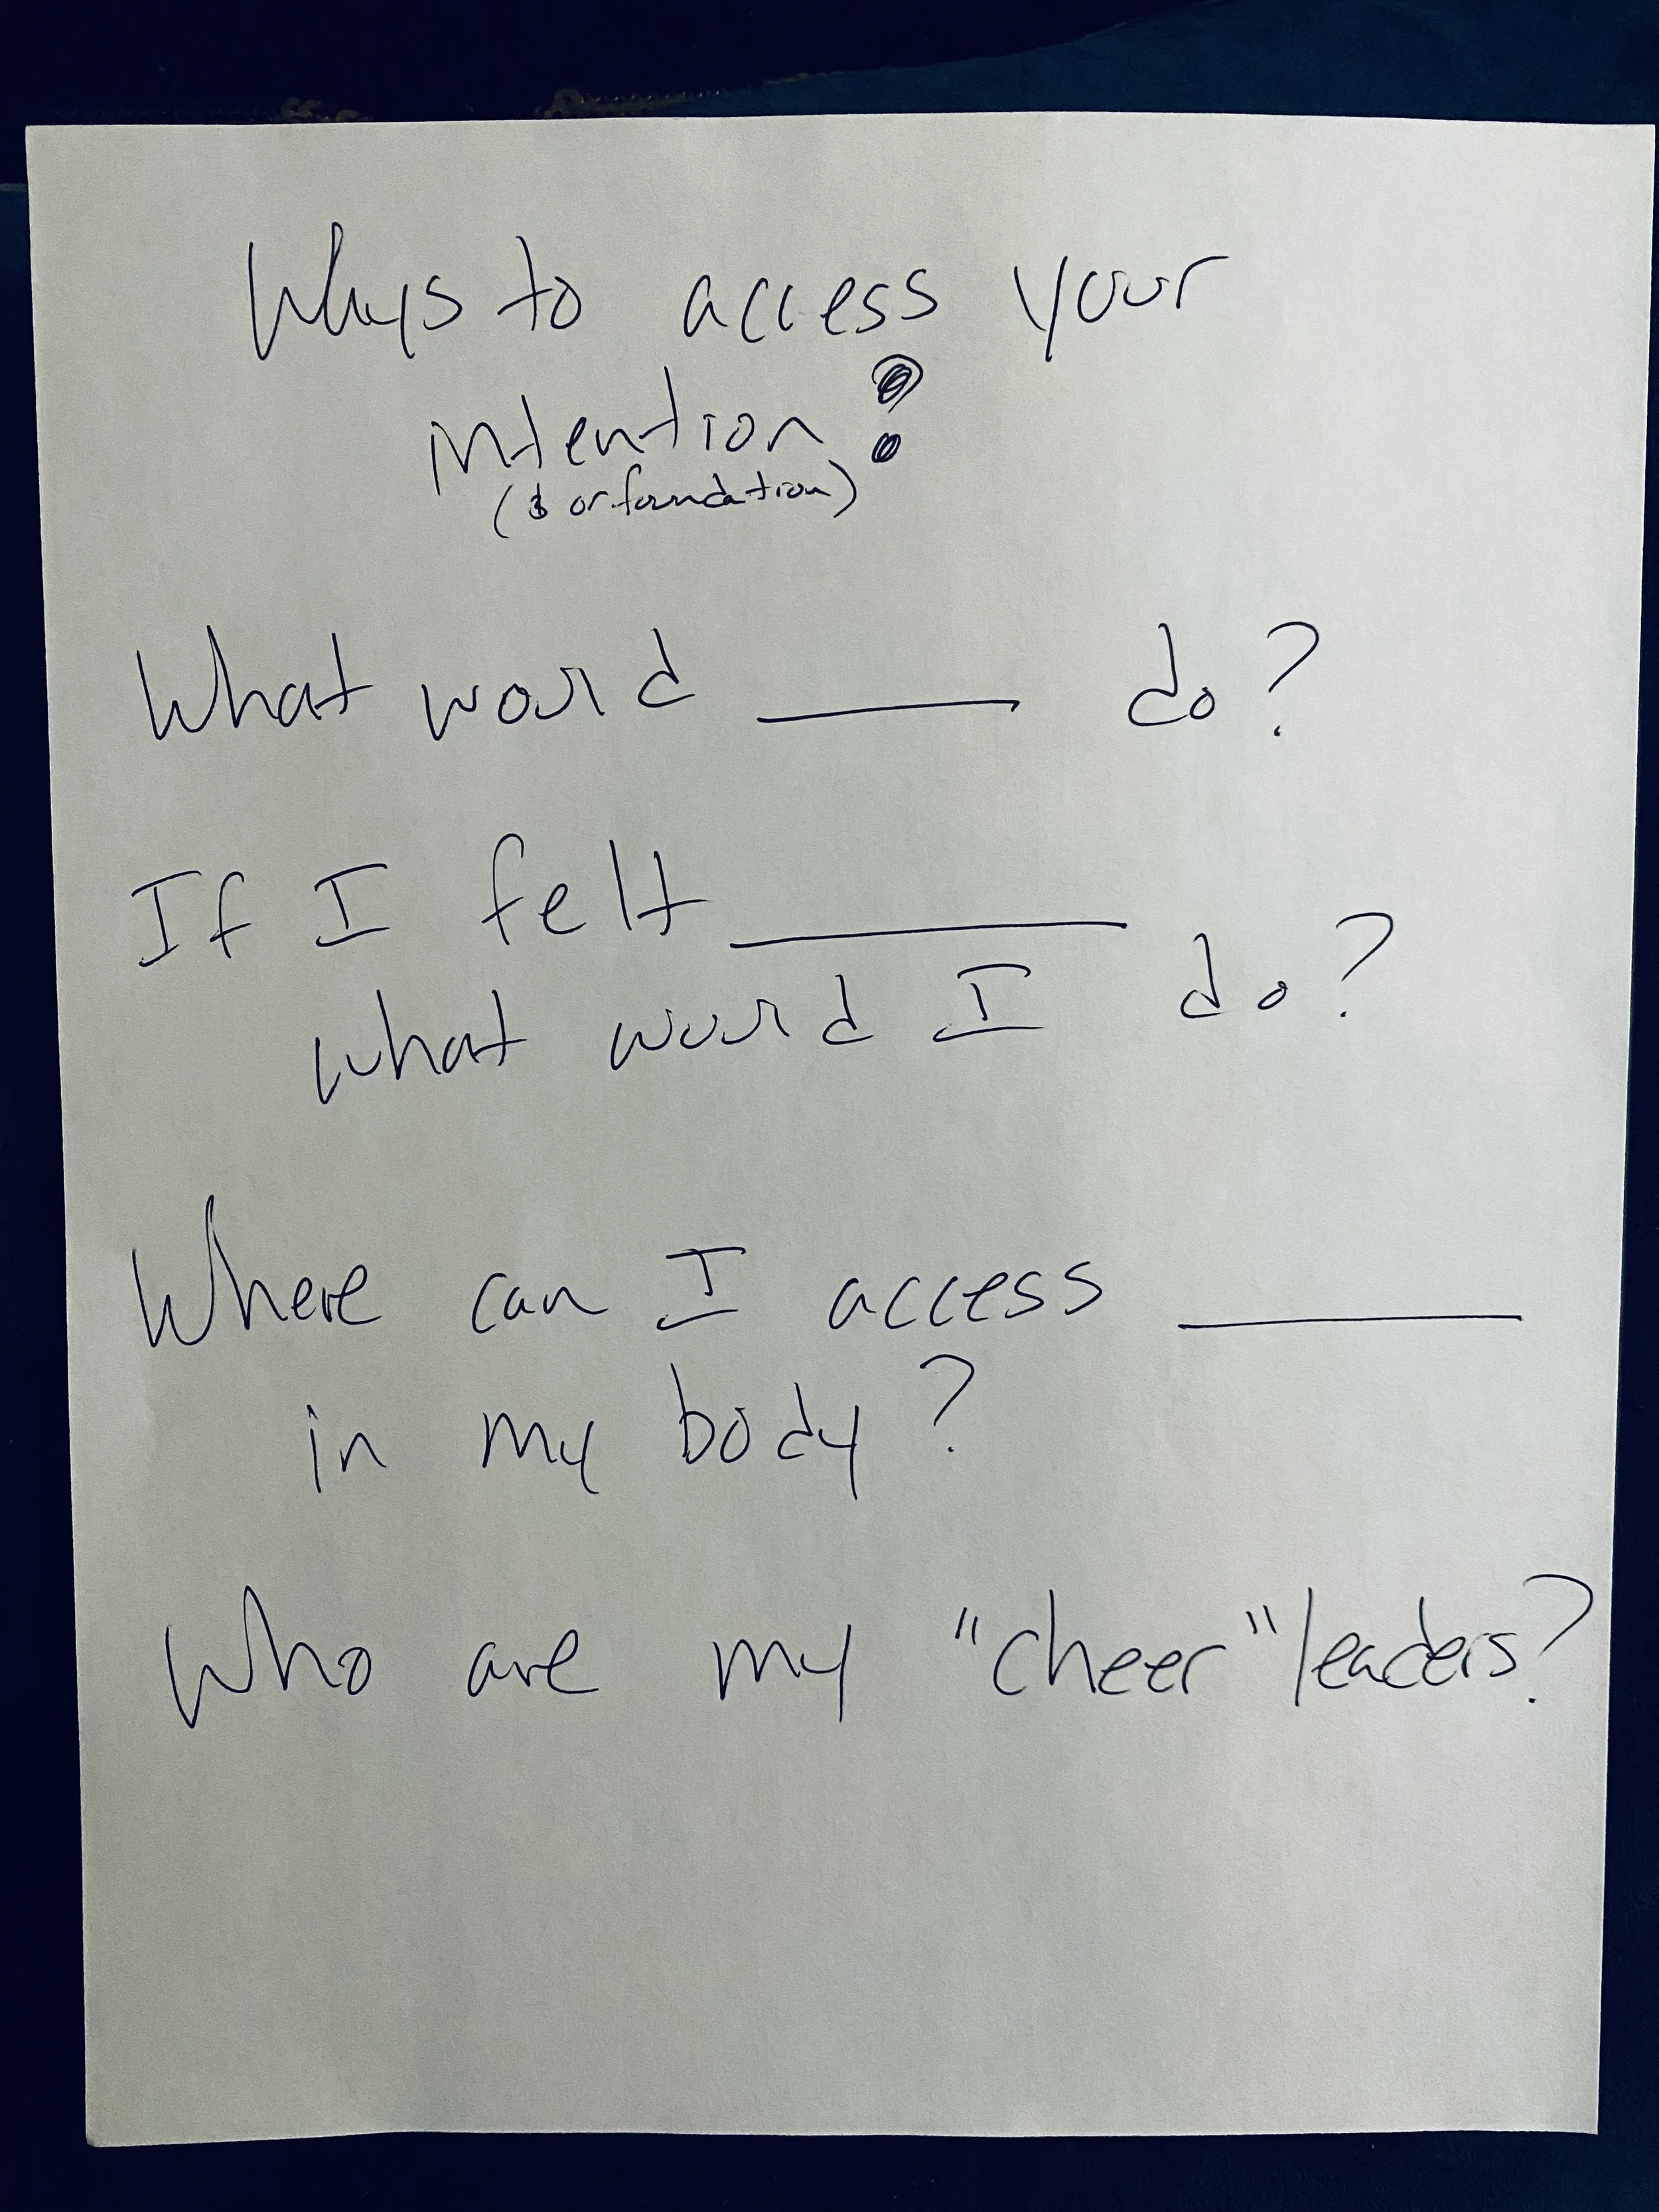 Ways to access your
intention:
(& or foundation)
What would ____ do?
If I felt ______
what would I do?
Where can I access _____
in my body?
Who are my "cheer" leaders?